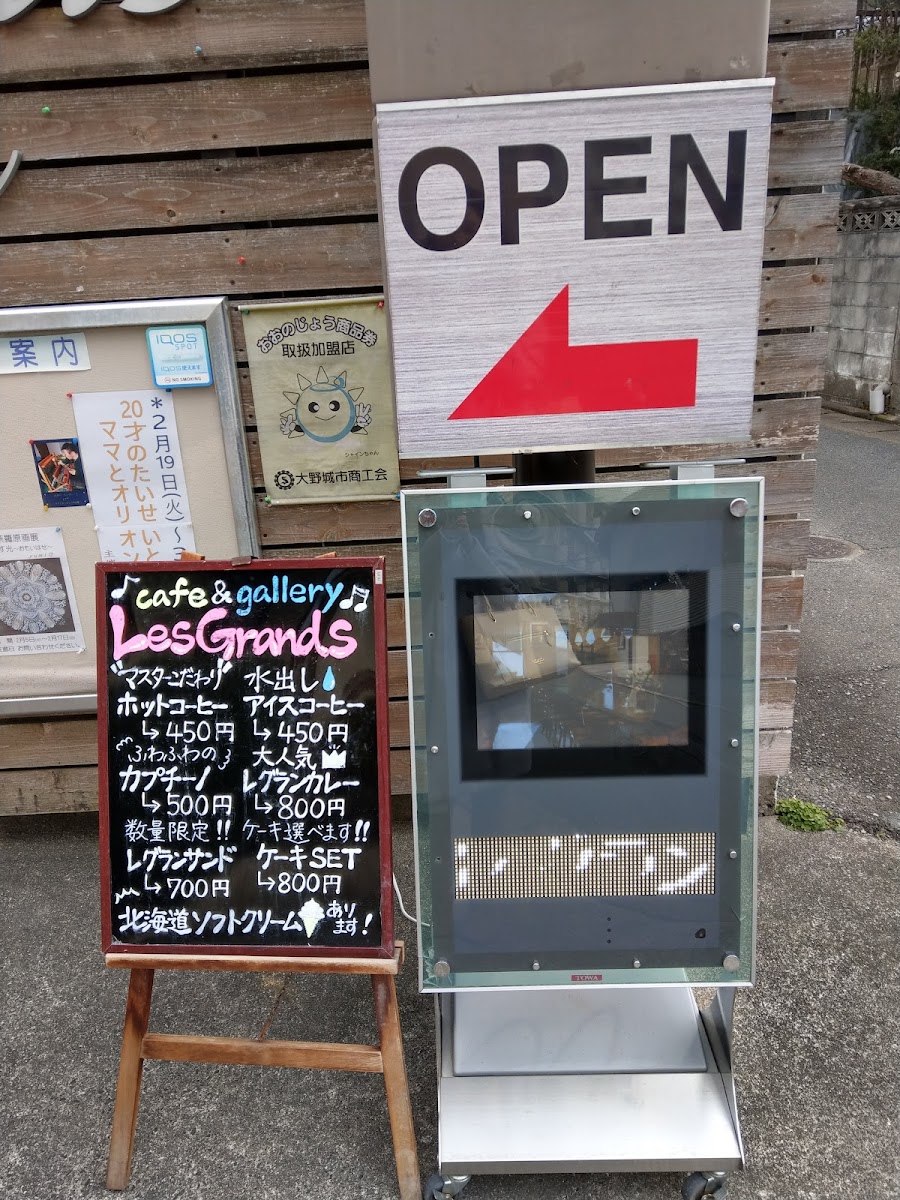 OPEN
案内
IQOS
SPOT
*2月19日(火)～
20才のたいせいと
ママとオリオン
おおのじょう商品券
取扱加盟店
シャインちゃん
大野城市商工会
cafe & gallery
LesGrands
"マスターこだわり"
ホットコーヒー
↳450円
ふわふわの
カプチーノ
↳500円
数量限定!!
レグランサンド
↳700円
水出し
アイスコーヒー
↳450円
大人気
レグランカレー
↳800円
ケーキ選べます!!
ケーキSET
↳800円
北海道ソフトクリームあります!
TOWA